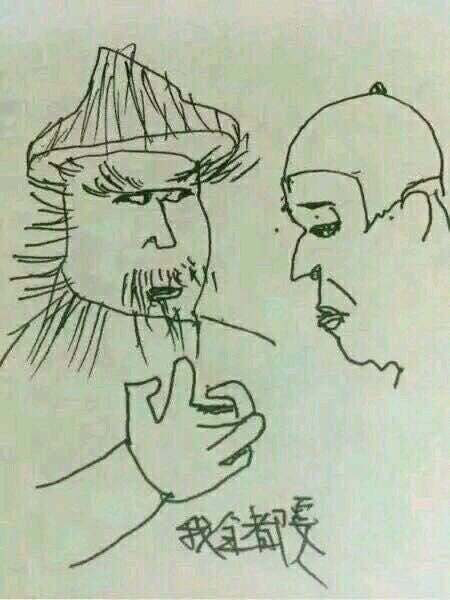 我全都要